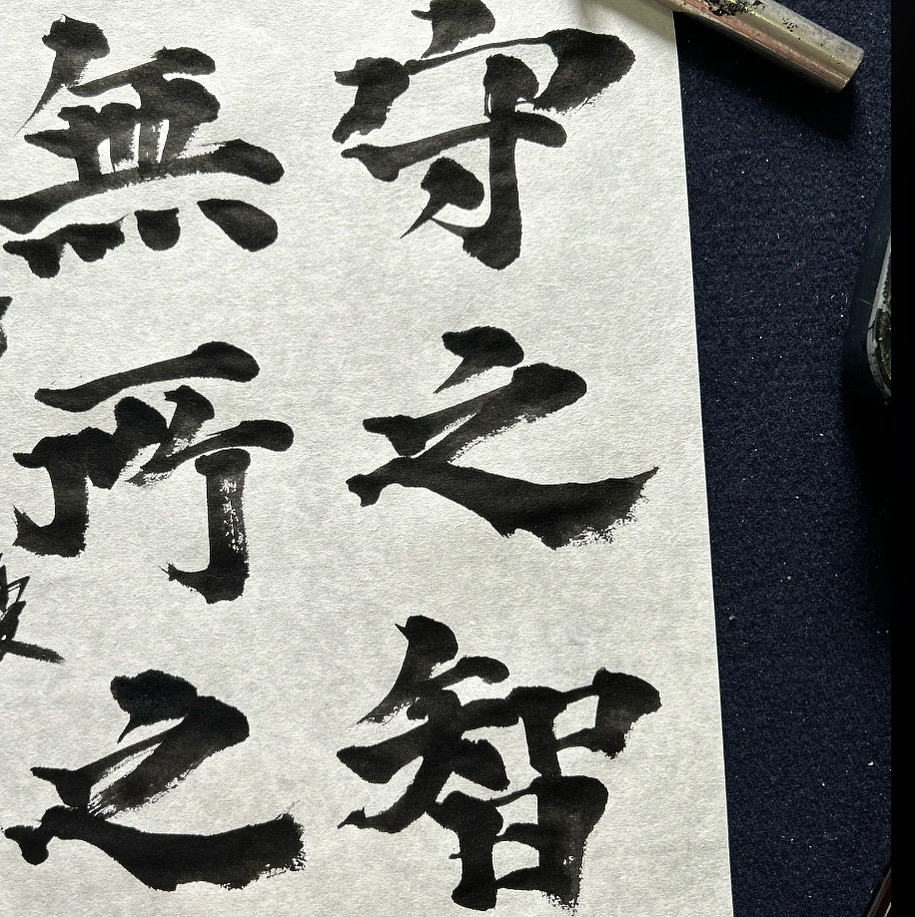 守之智
無所之